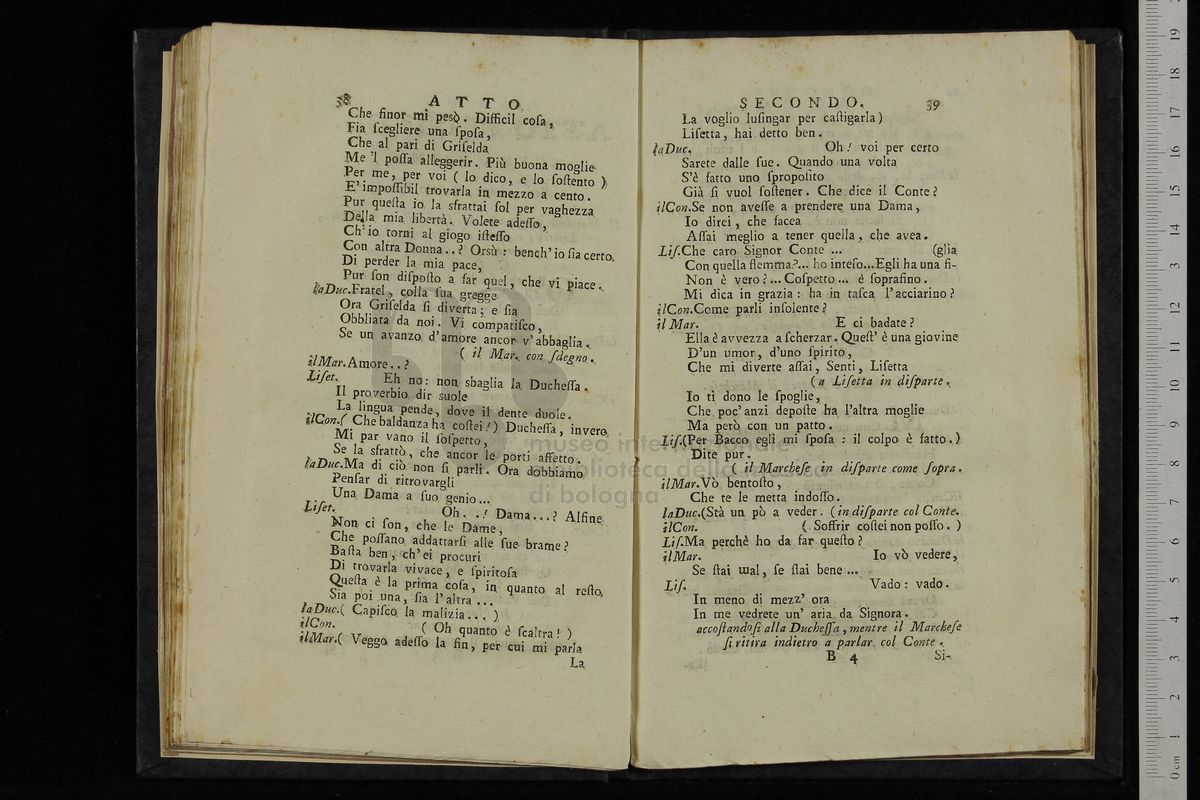 38 ATTO
Che finor mi pesò. Difficil cosa,
Fia scegliere una sposa,
Che al pari di Griselda
Me 'l possa alleggerir. Più buona moglie
Per me, per voi ( lo dico, e lo sostento )
E' impossibil trovarla in mezzo a cento.
Pur questa io la sfrattai sol per vaghezza
Della mia libertà. Volete adesso,
Ch' io torni al giogo istesso
Con altra Donna..? Orsù: bench' io sia certo.
Di perder la mia pace,
Pur son disposto a far quel, che vi piace.
laDuc.Fratel, colla sua gregge
Ora Griselda si diverta; e sia
Obbliata da noi. Vi compatisco,
Se un avanzo d'amore ancor v'abbaglia.
( il Mar. con sdegno.
ilMar.Amore..?
Liset. Eh no: non sbaglia la Duchessa.
Il proverbio dir suole
La lingua pende, dove il dente duole.
ilCon.( Che baldanza ha costei!) Duchessa, invero
Mi par vano il sospetto,
Se la sfrattò, che ancor le porti affetto.
laDuc.Ma di ciò non si parli. Ora dobbiamo
Pensar di ritrovargli
Una Dama a suo genio...
Liset. Oh..! Dama...? Alfine
Non ci son, che le Dame,
Che possano addattarsi alle sue brame?
Basta ben, ch'ei procuri
Di trovarla vivace, e spiritosa
Questa è la prima cosa, in quanto al resto,
Sia poi una, sia l'altra...
laDuc.( Capisco la malizia... )
ilCon. ( Oh quanto è scaltra! )
ilMar.( Veggo adesso la fin, per cui mi parla
La
SECONDO. 39
La voglio lusingar per castigarla)
Lisetta, hai detto ben.
laDuc. Oh! voi per certo
Sarete dalle sue. Quando una volta
S'è fatto uno sproposito
Già si vuol sostener. Che dice il Conte?
ilCon.Se non avesse a prendere una Dama,
Io direi, che facea
Assai meglio a tener quella, che avea.
Lis.Che caro Signor Conte ... (glia
Con quella flemma?... ho inteso...Egli ha una fi-
Non è vero?... Cospetto... è soprafino.
Mi dica in grazia: ha in tasca l'acciarino?
ilCon.Come parli insolente?
il Mar. E ci badate?
Ella è avvezza a scherzar. Quest' è una giovine
D'un umor, d'uno spirito,
Che mi diverte assai, Senti, Lisetta
(a Lisetta in disparte.
Io ti dono le spoglie,
Che poc' anzi deposte ha l'altra moglie
Ma però con un patto.
Lis.(Per Bacco egli mi sposa : il colpo è fatto.)
Dite pur.
( il Marchese in disparte come sopra.
ilMar.Vò bentosto,
Che te le metta indosso.
laDuc.(Stà un pò a veder. (in disparte col Conte.
ilCon. ( Soffrir costei non posso. )
Lis.Ma perchè ho da far questo?
ilMar. Io vò vedere,
Se stai mal, se stai bene ...
Lis. Vado: vado.
In meno di mezz' ora
In me vedrete un' aria da Signora.
accostandosi alla Duchessa, mentre il Marchese
si ritira indietro a parlar col Conte.
B 4 Si-
museo internazionale
biblioteca della musica
di bologna
0 cm 1 2 3 4 5 6 7 8 9 10 11 12 13 14 15 16 17 18 19